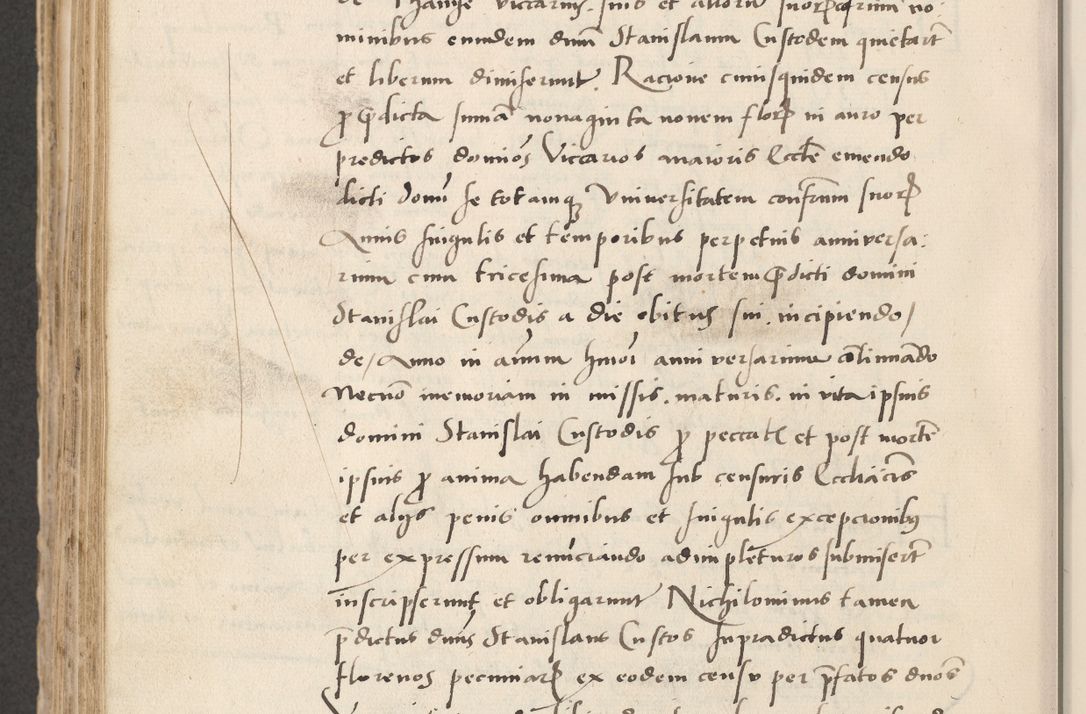 minibus eundem dnm̄ Stanislaum Custodem quietart̄
et liberum dimiserunt. Racione cuiusquidem census
ꝓ p̄dicta sum̄a nonaginta novem florꝝ in auro per
predictos domīos Viccarios maioris Eccl̄e emendo
dicti domī se totamqꝫ Universitatem confr̄um suorꝝ
Annis singulis et temporibus perpetuis anniversa:
rium cum tricesima post mortem p̄dicti domini
Stanislai Custodis a die obitus sui incipiendo/
de/ Anno in an̄um hmōi anniversarium cōtinuādo
Necnō memoriam in missis maturis in vita ipsius
domini Stanislai Custodis ꝓ peccat̄ et post mortē
ipsius ꝓ anima habendam sub censuris Eccl̄iāciss
et alijs penis omnibus et singulis excepcionibꝫ
per expressum renūciando adimpleturos submisert̄
inscripserunt et obligarunt Nichilominus tamen
p̄dictus dn̄s Stanislaus Custos Supradictus quatuor
florenos pecuniarꝝ ex eodem censu per p̄fatos dnōs